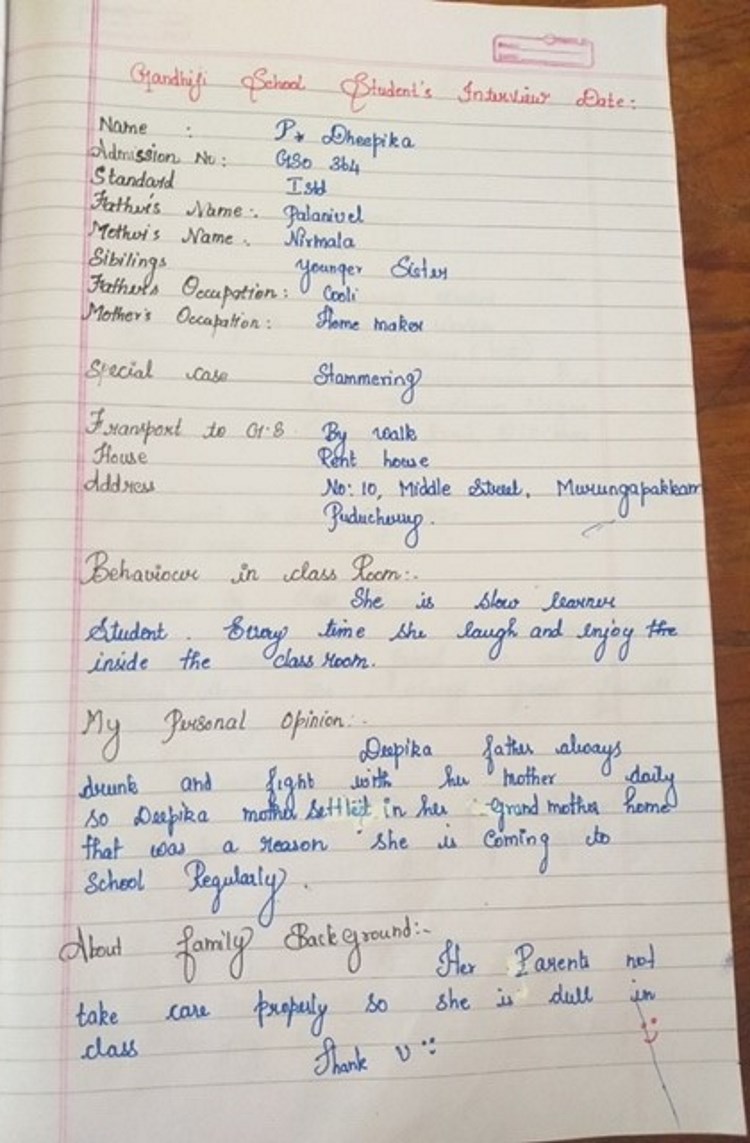 Gandhiji School Student's Interview Date:
Name : P. Dheepika
Admission No: GSO 364
Standard I std
Father's Name:. Palanivel
Mother's Name. Nirmala
Sibilings Younger Sister
Father's Occupation: Cooli
Mother's Occupation: Home maker
Special case Stammering
Transport to G.S By walk
House Rent house
Address No: 10, Middle Street, Murungapakkam
Puducherry.
Behaviour in class Room:.
She is slow learner
Student. Every time she laugh and enjoy the
inside the class room.
My Personal Opinion:.
Deepika father always
drunk and fight with her mother daily
so Deepika mother settled in her Grand mother home
that was a reason she is coming to
School Regularly.
About family Background:-
Her Parents not
take care properly so she is dull in
class Thank U